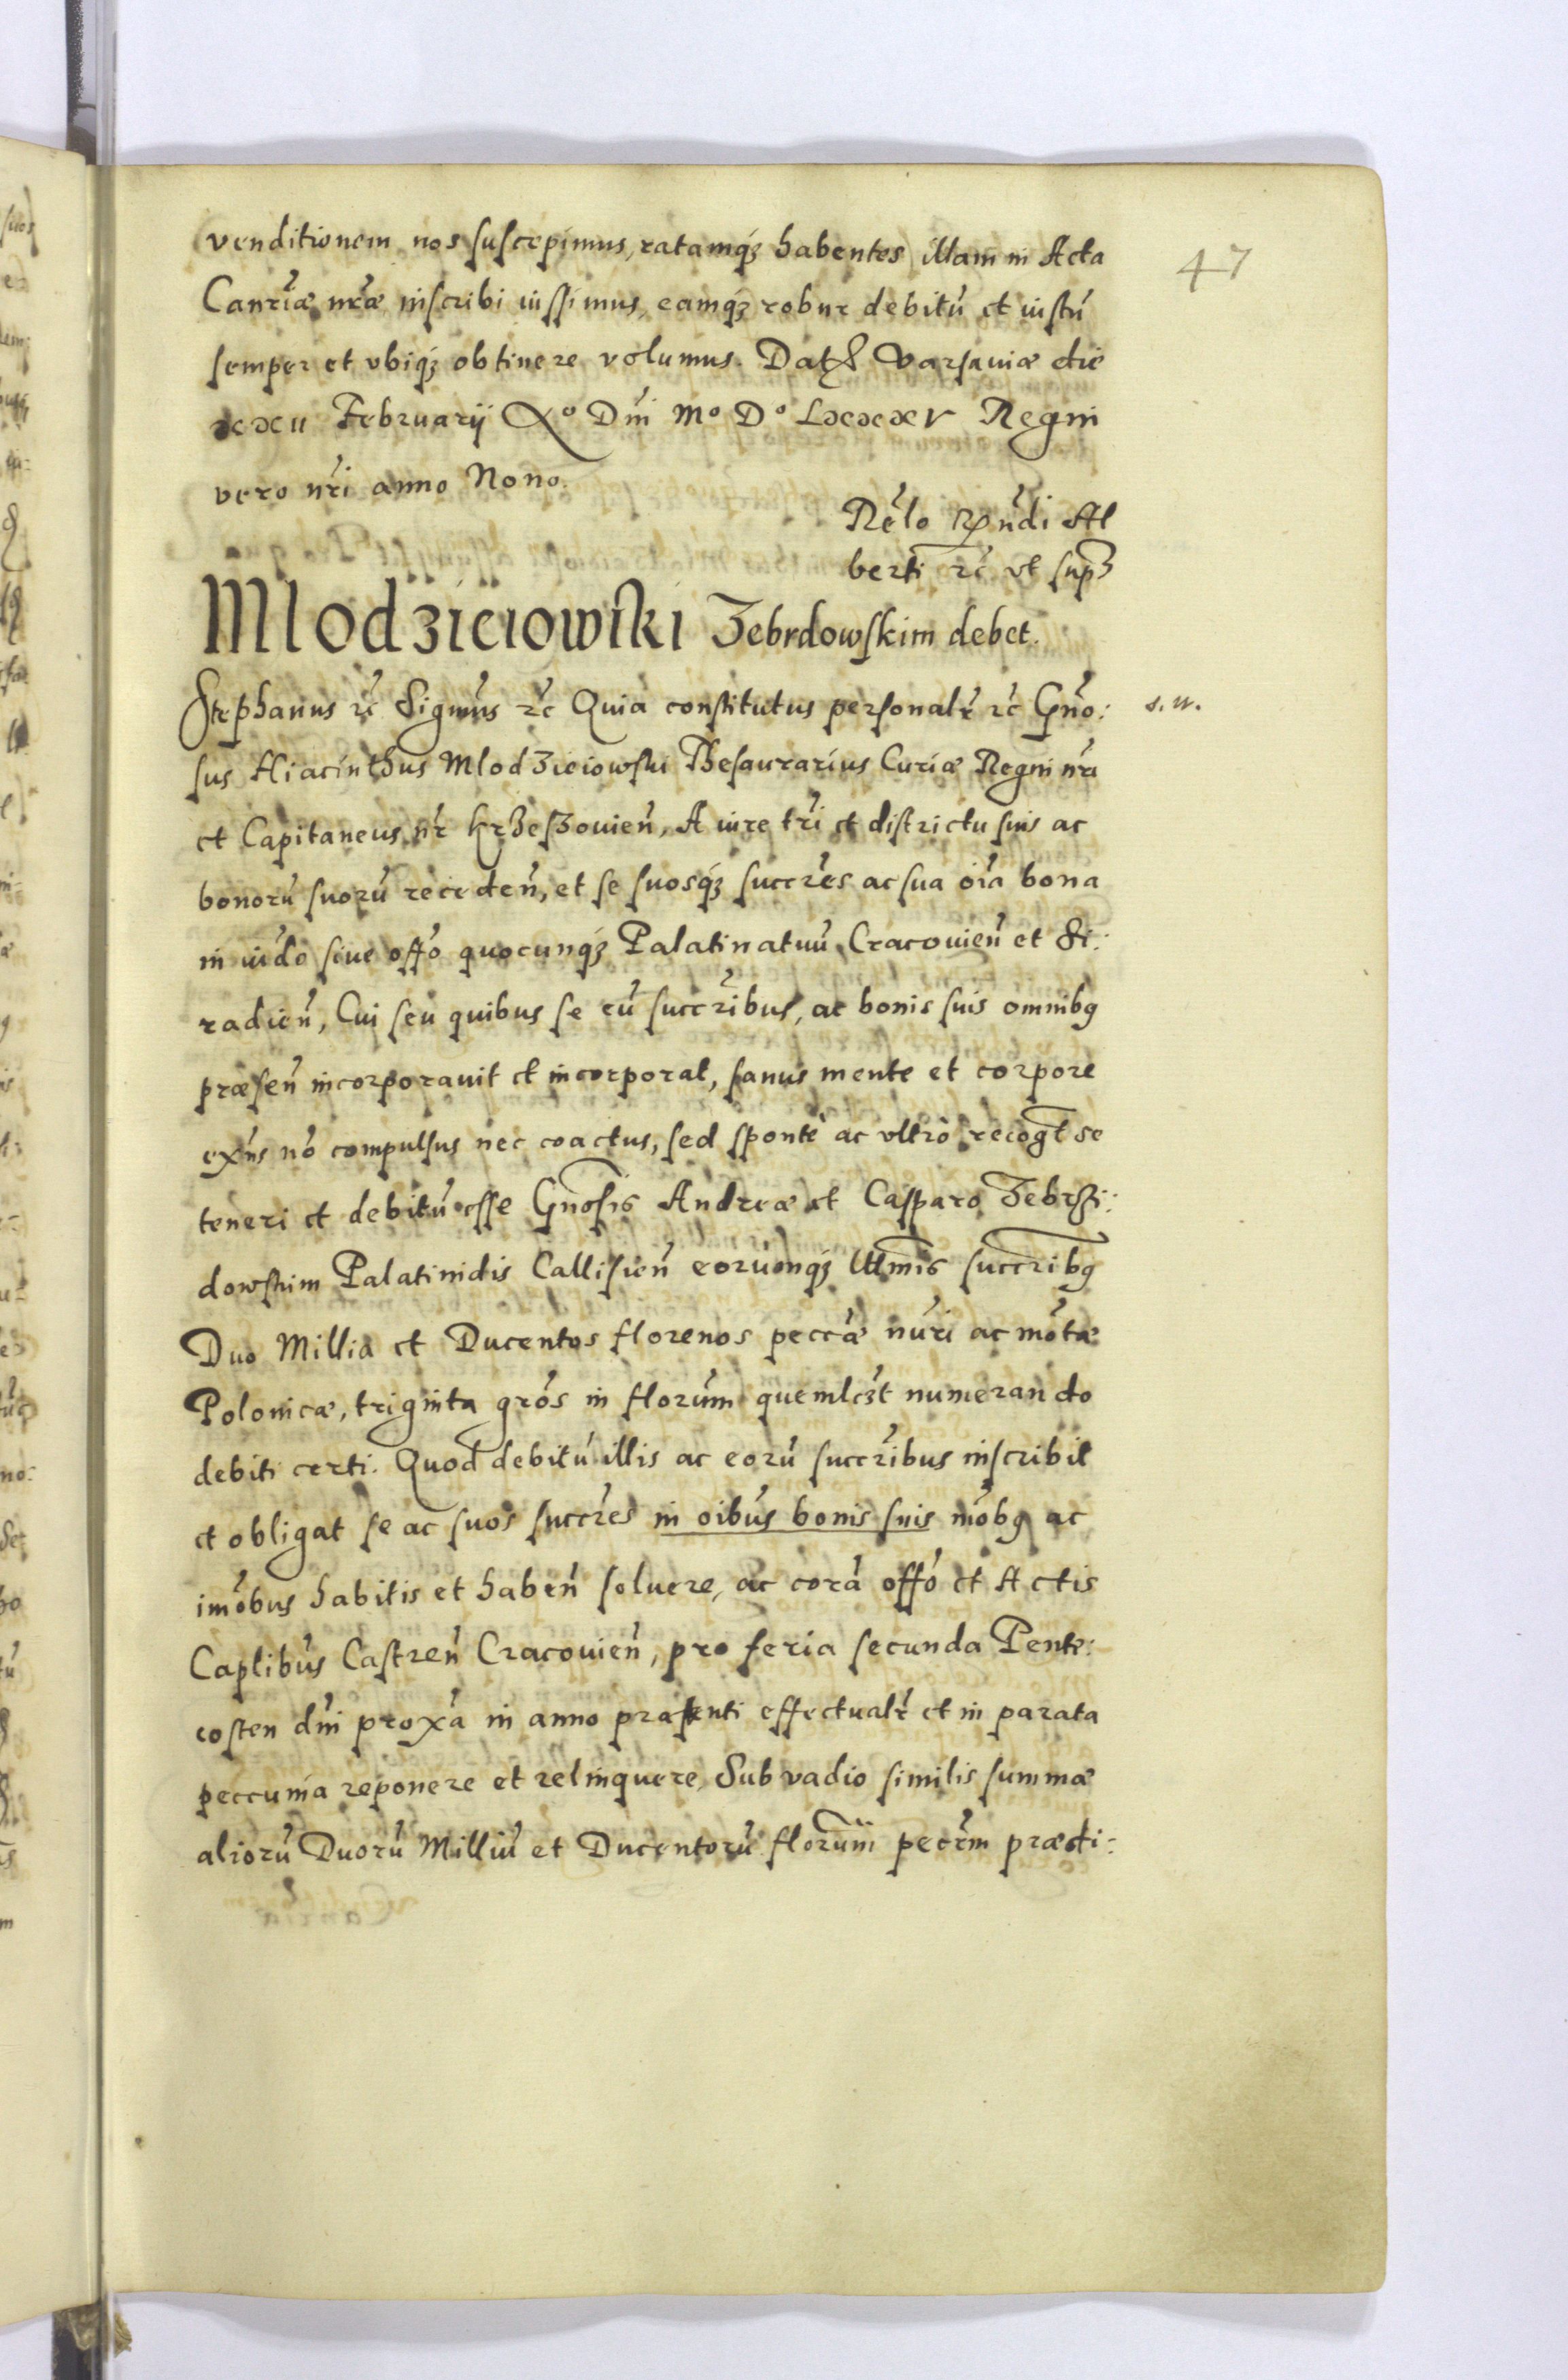 venditionem nos suscepimus, ratamq́ʒ habentes illam in Acta
47
Canriæ nræ inscribi iussimus, eamq́ʒ robur debitū et iustū
semper et vbiq́ʒ obtinere volumus. Dat Varsauiæ die
xxii Februarij Aº Dni Mº Dº Lxxxv Regni
vero nri anno Nono.
Relo Rndi Al
berti rc vt supʒ
Mlodzieiowski Zebrdowskim debet.
Stephanus rc Signus rc Quia constitutus personalr rc Gno:
s. n.
sus Hiacinthus Mlodzieiowski Thesaurarius Curiæ Regni nri
et Capitaneus nr Krzeszouien, A iure tri et districtu suis ac
bonorū suorū receden, et se suosq́ʒ succres ac sua oia bona
in iude siue offo quocunq́ʒ Palatinatuū Cracouien et Si:
radien, Cui seu quibus se cū succribus, ac bonis suis omnibꝯ
præsen incorporauit et incorporat, sanus mente et corpore
exns no compulsus nec coactus, sed spontè ac vltrò recogt se
teneri et debitū esse Gnosis Andreæ et Casparo Zebrzi:
dowskim Palatinidis Callisien eorumq́ʒ lltmis succribꝯ
Duo Millia et Ducentos florenos peccæ nuri ac motæ
Polonicæ, triginta gros in florum quemlcʒt numerando
debiti certi. Quod debitū illis ac eorū succribus inscribit
et obligat se ac suos succres in oibus bonis suis mobꝯ ac
imobus habitis et haben soluere, ac corā offo et Actis
Caplibus Castren Cracouien, pro feria secunda Pente:
costen dni proxa in anno præsenti effectualr et in parata
peccunia reponere et relinquere, Sub vadio similis summæ
aliorū Duorū Milliū et Ducentorū florum pecrm prædi: